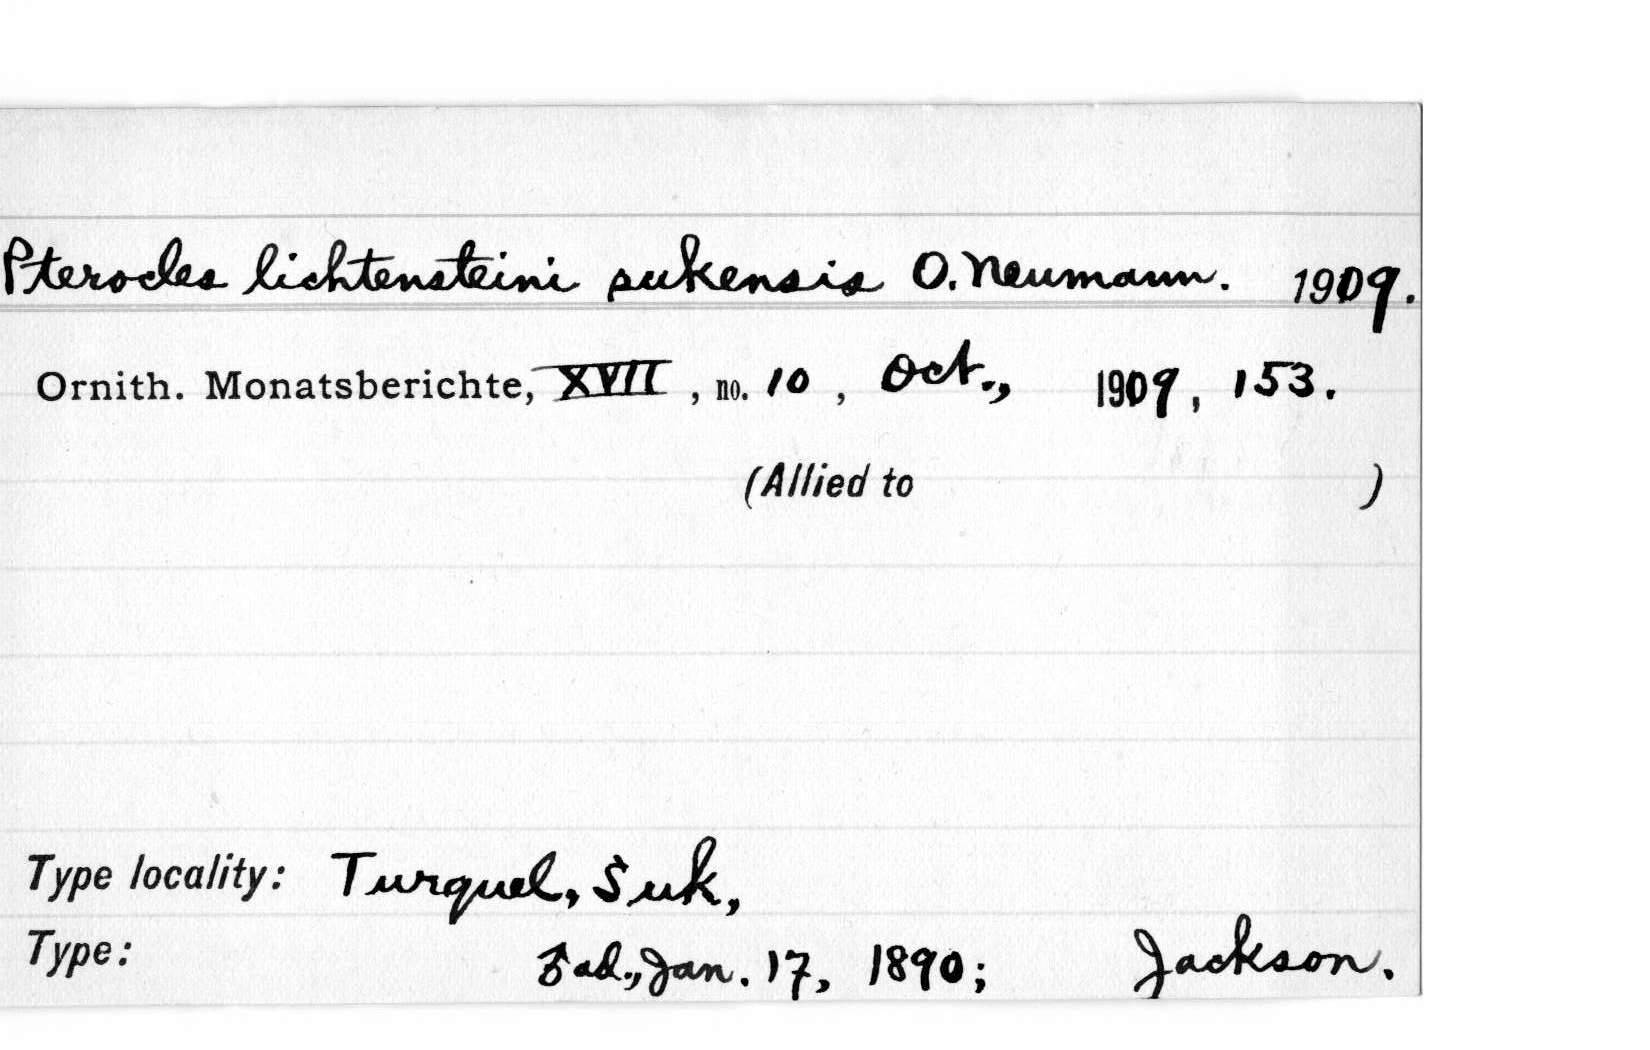 Pterocles lichtensteini sukensis O. Neumann. 1909.
Ornith. Monatsberichte, XVII, no. 10, Oct., 1909, 153.
(Allied to )
Type locality: Turquel, Suk,
Type: ad., Jan. 17, 1890; Jackson.